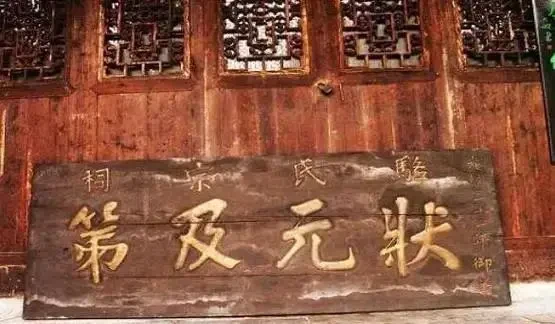 駱氏宗祠
狀元及第